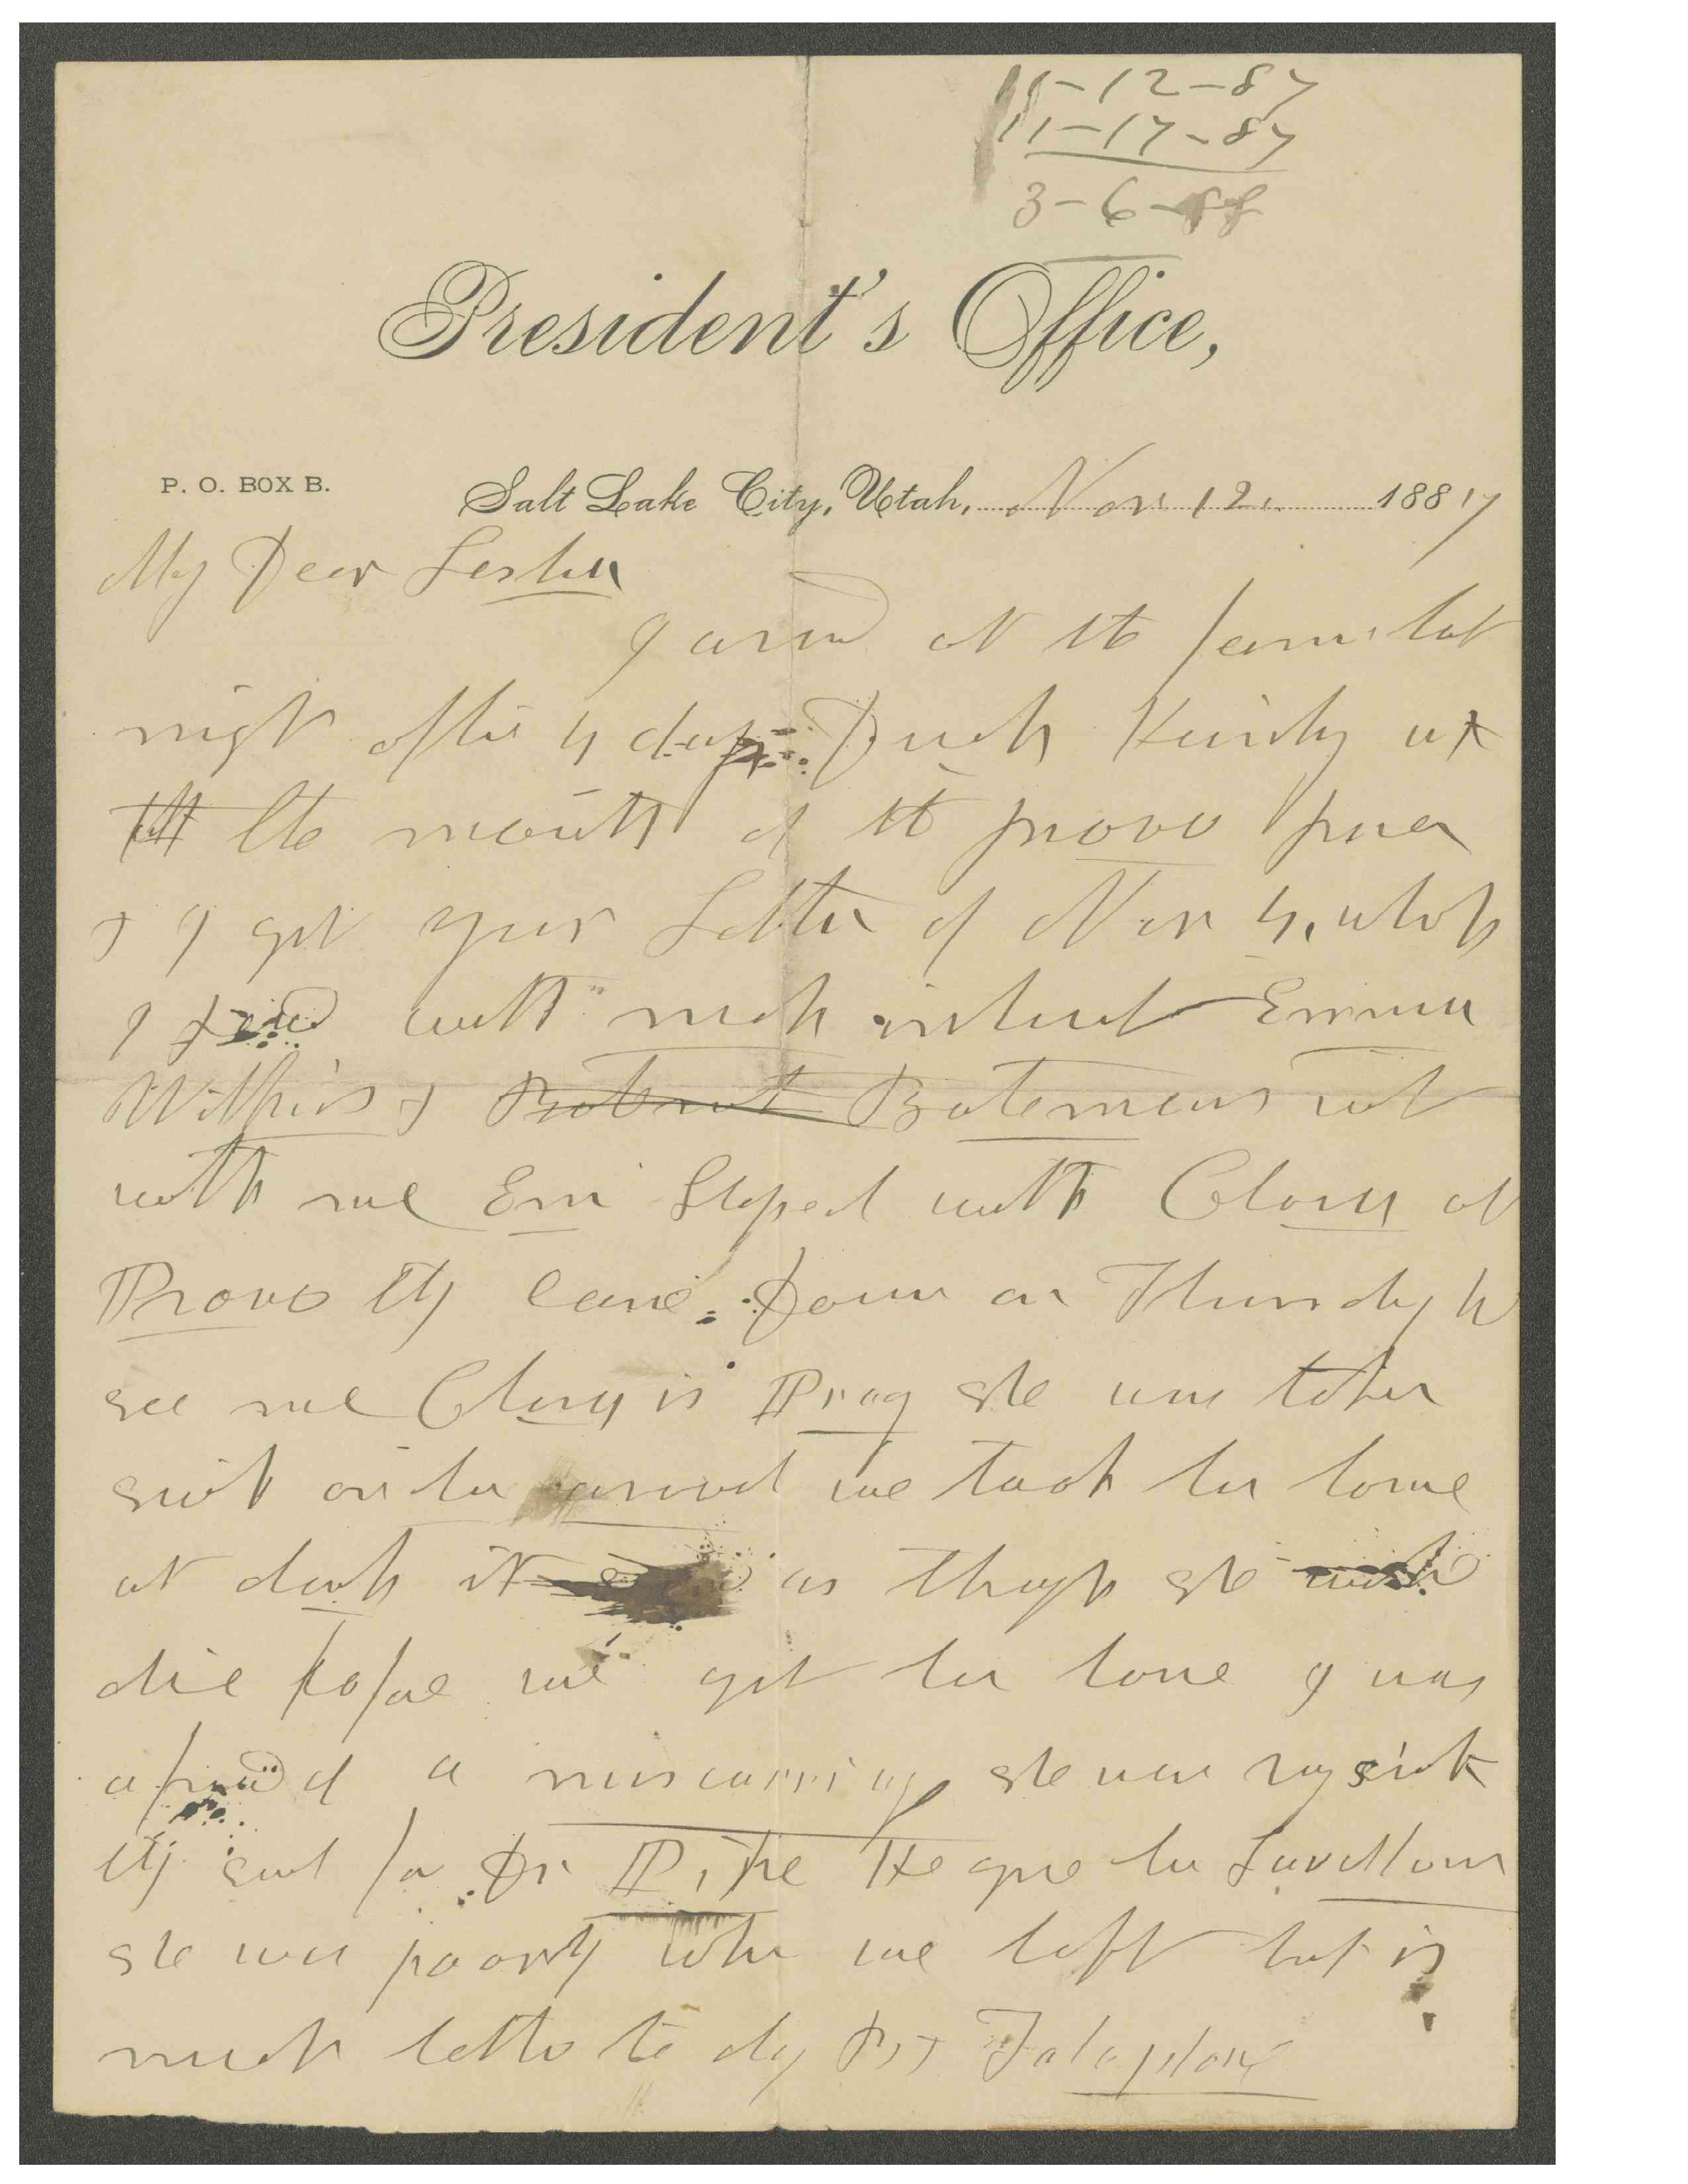 11-12-87
11-17-87
3-6-88
President's Office,
P. O. BOX B.
Salt Lake City, Utah, Nov 12. 1887
My Dear
I arivd at the farm last
night after 4 days Duck Hunting at
the mouth of the provo River
& I got your Letter of Nov 4, which
I read with much intrest Emma
Wilkins & Batemans wife
with me Em Stoped with Clary at
Provo they came Down on Thursday to
see me Clary is Preg she was taken
sick on her arival we took her home
at dark it as though she would
die before we got her home I was
afraid of a miscarriage she was very sick
they sent for Dr Pike He gave her
she was poorly when we left but is
much better to day By Telephone